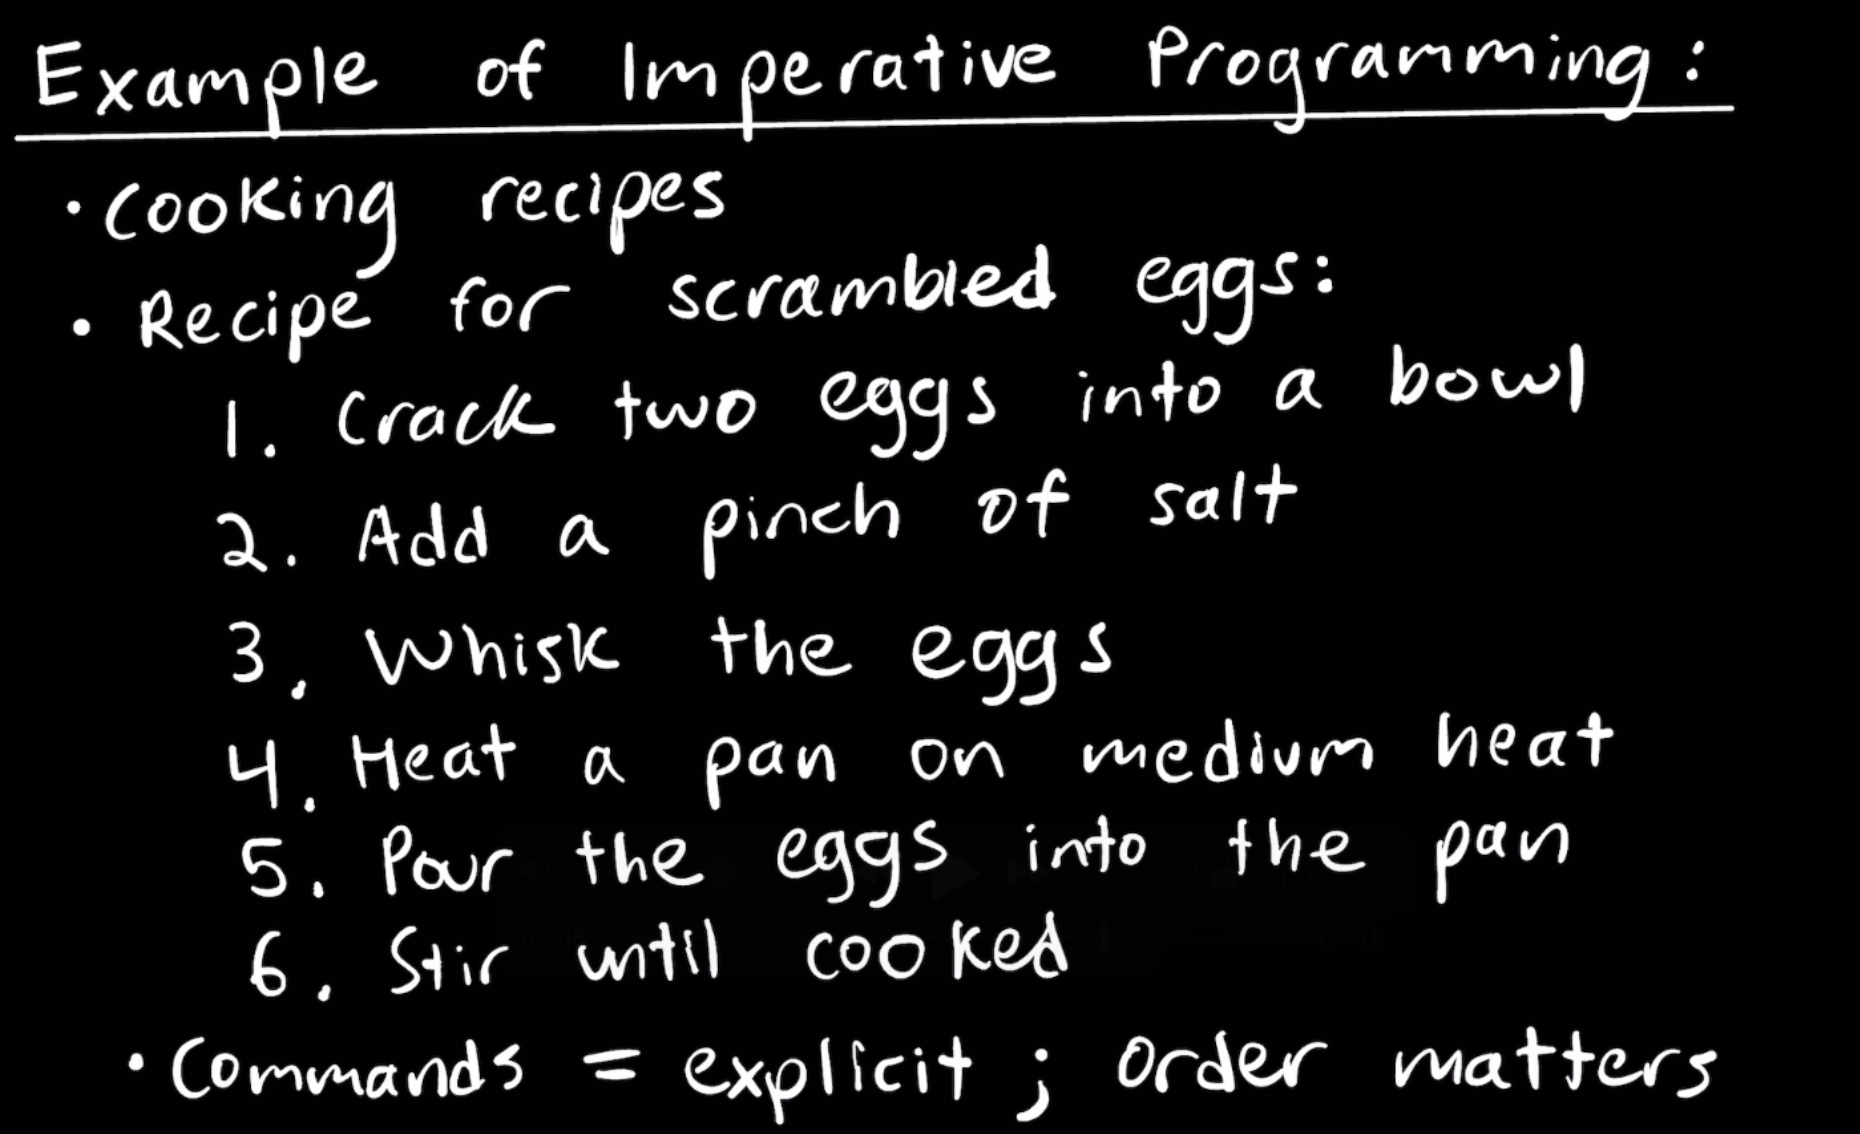 Example of Imperative Programming:
• Cooking recipes
• Recipe for scrambled eggs:
1. Crack two eggs into a bowl
2. Add a pinch of salt
3. Whisk the eggs
4. Heat a pan on medium heat
5. Pour the eggs into the pan
6. Stir until cooked
• Commands = explicit; order matters